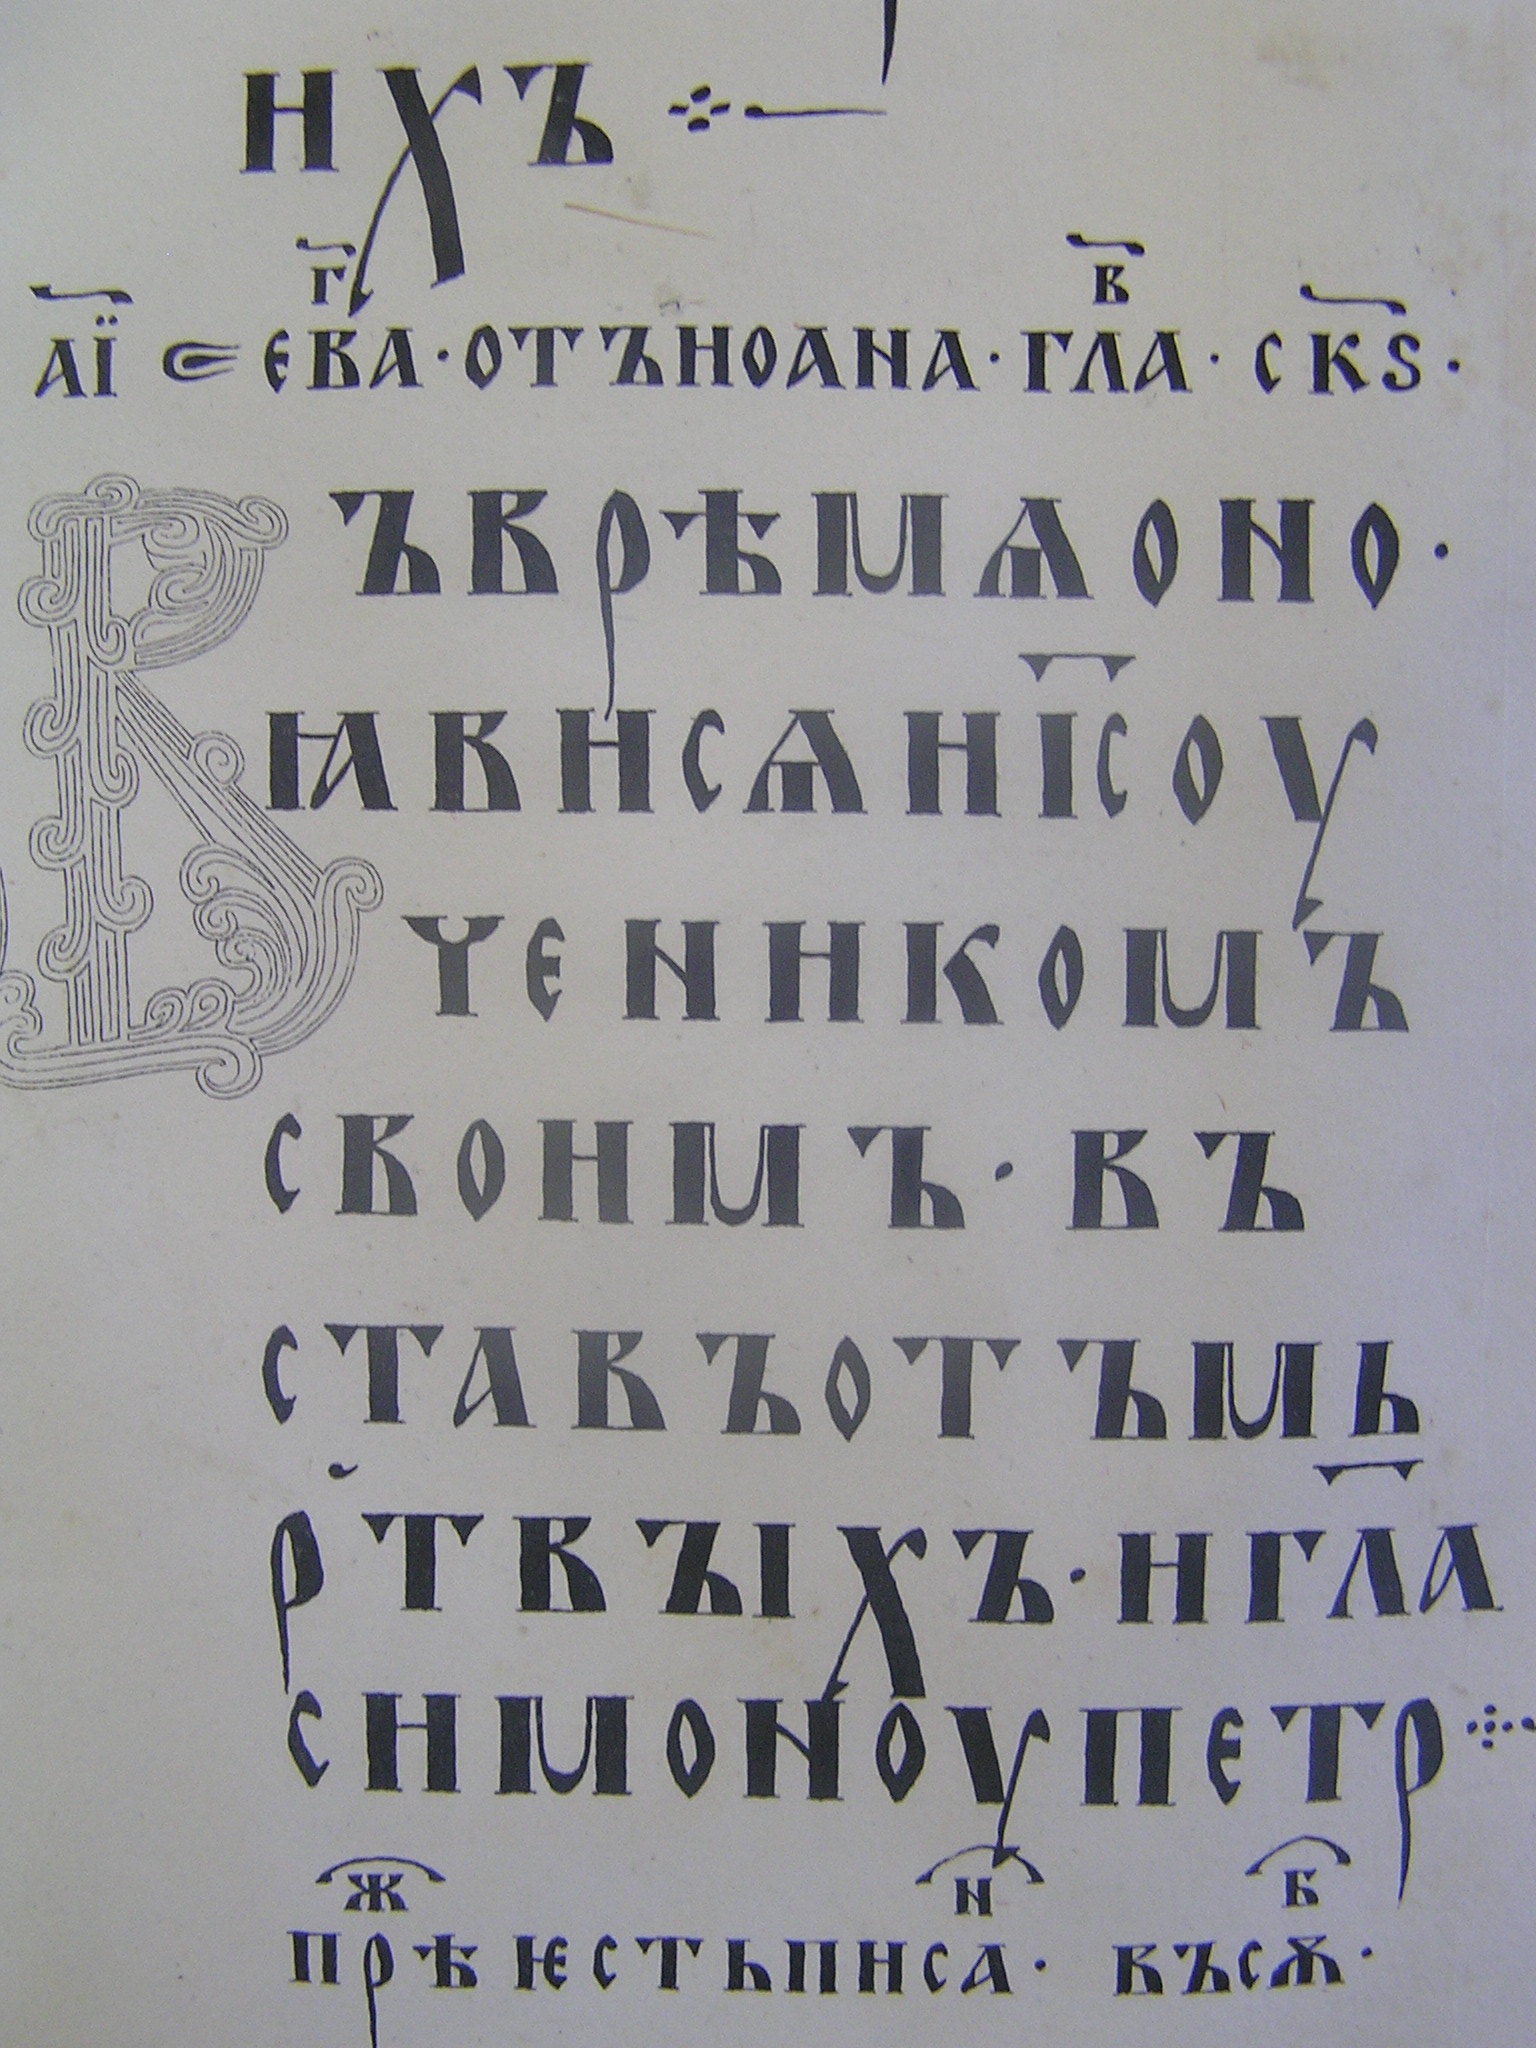 нхъ ⁘—
а҃ї ⋐ ева҃г · отъ ноана · гла҃в · ск҃ѕ ·
Въ врѣмѧ оно ·
ꙗвн сѧ н і҃с оу
ченнкомъ
свонмъ · въ
ставъ отъ мь
р҃твъıхъ · н гл҃а
снмоноу петр ⁘
прѣ ѥсть пнс҃на · въсѫ҃б ·